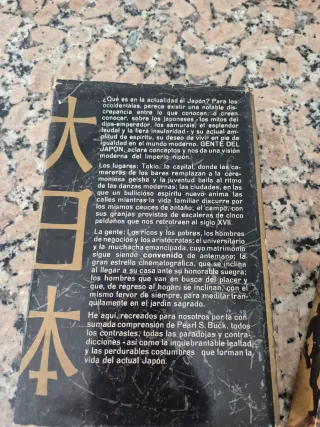 大日本
¿Qué es en la actualidad el Japón? Para los
occidentales, parece existir una notable dis-
crepancia entre lo que conocen, o creen
conocer, sobre los japoneses - los mitos del
dios-emperador, los samurais, el esplendor
feudal y la fiera insularidad - y su actual am-
plitud de espíritu, su deseo de vivir en pie de
igualdad en el mundo moderno. GENTE DEL
JAPON, aclara conceptos y nos da una visión
moderna del Imperio nipón.
Los lugares: Tokio, la capital, donde las ca-
mareras de los bares remplazan a la cere-
moniosa geisha y la juventud baila al ritmo
de las danzas modernas; las ciudades, en las
que un bullicioso espíritu nuevo anima las
calles mientras la vida familiar discurre por
los mismos cauces de antaño; el campo, con
sus granjas provistas de escaleras de cinco
peldaños que nos retrotraen al siglo XVII.
La gente: Los ricos y los pobres, los hombres
de negocios y los aristócratas; el universitario
y la muchacha emancipada, cuyo matrimonio
sigue siendo convenido de antemano; la
gran estrella cinematográfica, que se inclina
al llegar a su casa ante su honorable suegra;
los hombres que van en busca del placer y
que, de regreso al hogar, se inclinan, con el
mismo fervor de siempre, para meditar tran-
quilamente en el jardín sagrado.
He aquí, recreados para nosotros por la con-
sumada comprensión de Pearl S. Buck, todos
los contrastes, todas las paradojas y contra-
dicciones - así como la inquebrantable lealtad
y las perdurables costumbres que forman la
vida del actual Japón.